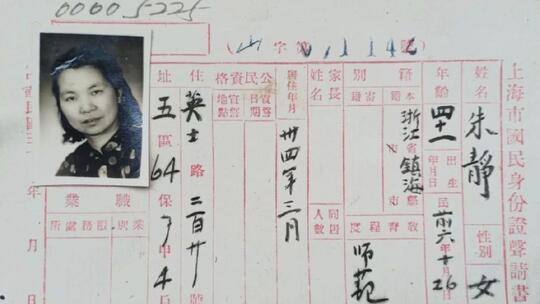 00005225
上海市國民身份證聲請書
姓名 朱靜 性別 女
年齡 四十一 出生年月日 民前六年十月26
籍別 本籍 浙江省鎮海縣市 寄籍
教育程度 師範
家長姓名 同居人數
居住年月 卅四年三月
公民資格 宣誓日期 宣誓地點
住址 英士路二百廿
五區64保 甲4戶
職業 業別 服務處所
年 月 日